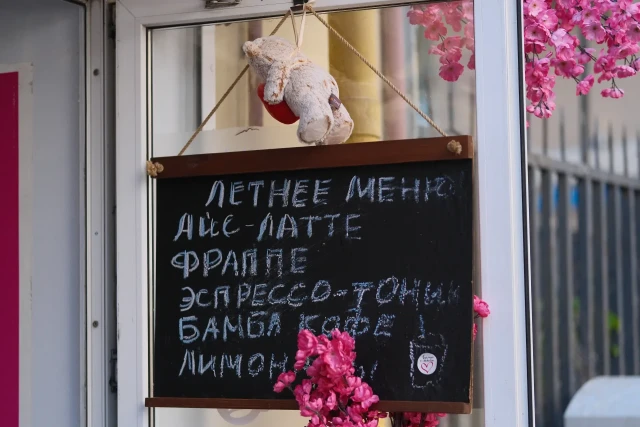 ЛЕТНЕЕ МЕНЮ
АЙС-ЛАТТЕ
ФРАППЕ
ЭСПРЕССО-ТОНИК
БАМБЛ КОФЕ !